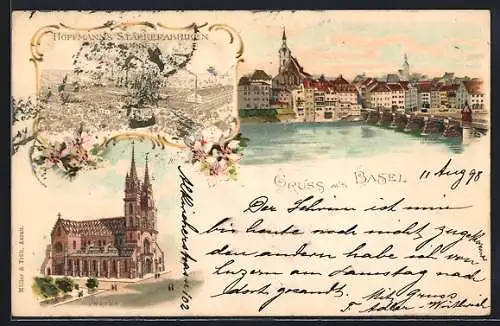 HOFFMANN'S STÄRKEFABRIKEN
GRUSS aus BASEL
11 Aug 98
Der Schirm ist mir
bis heute noch nicht zugekommen
den andern habe ich von
Luzern am Samstag nach
dort gesandt. Mit Gruss
F. Adler
Müller & Trüb, Aarau.